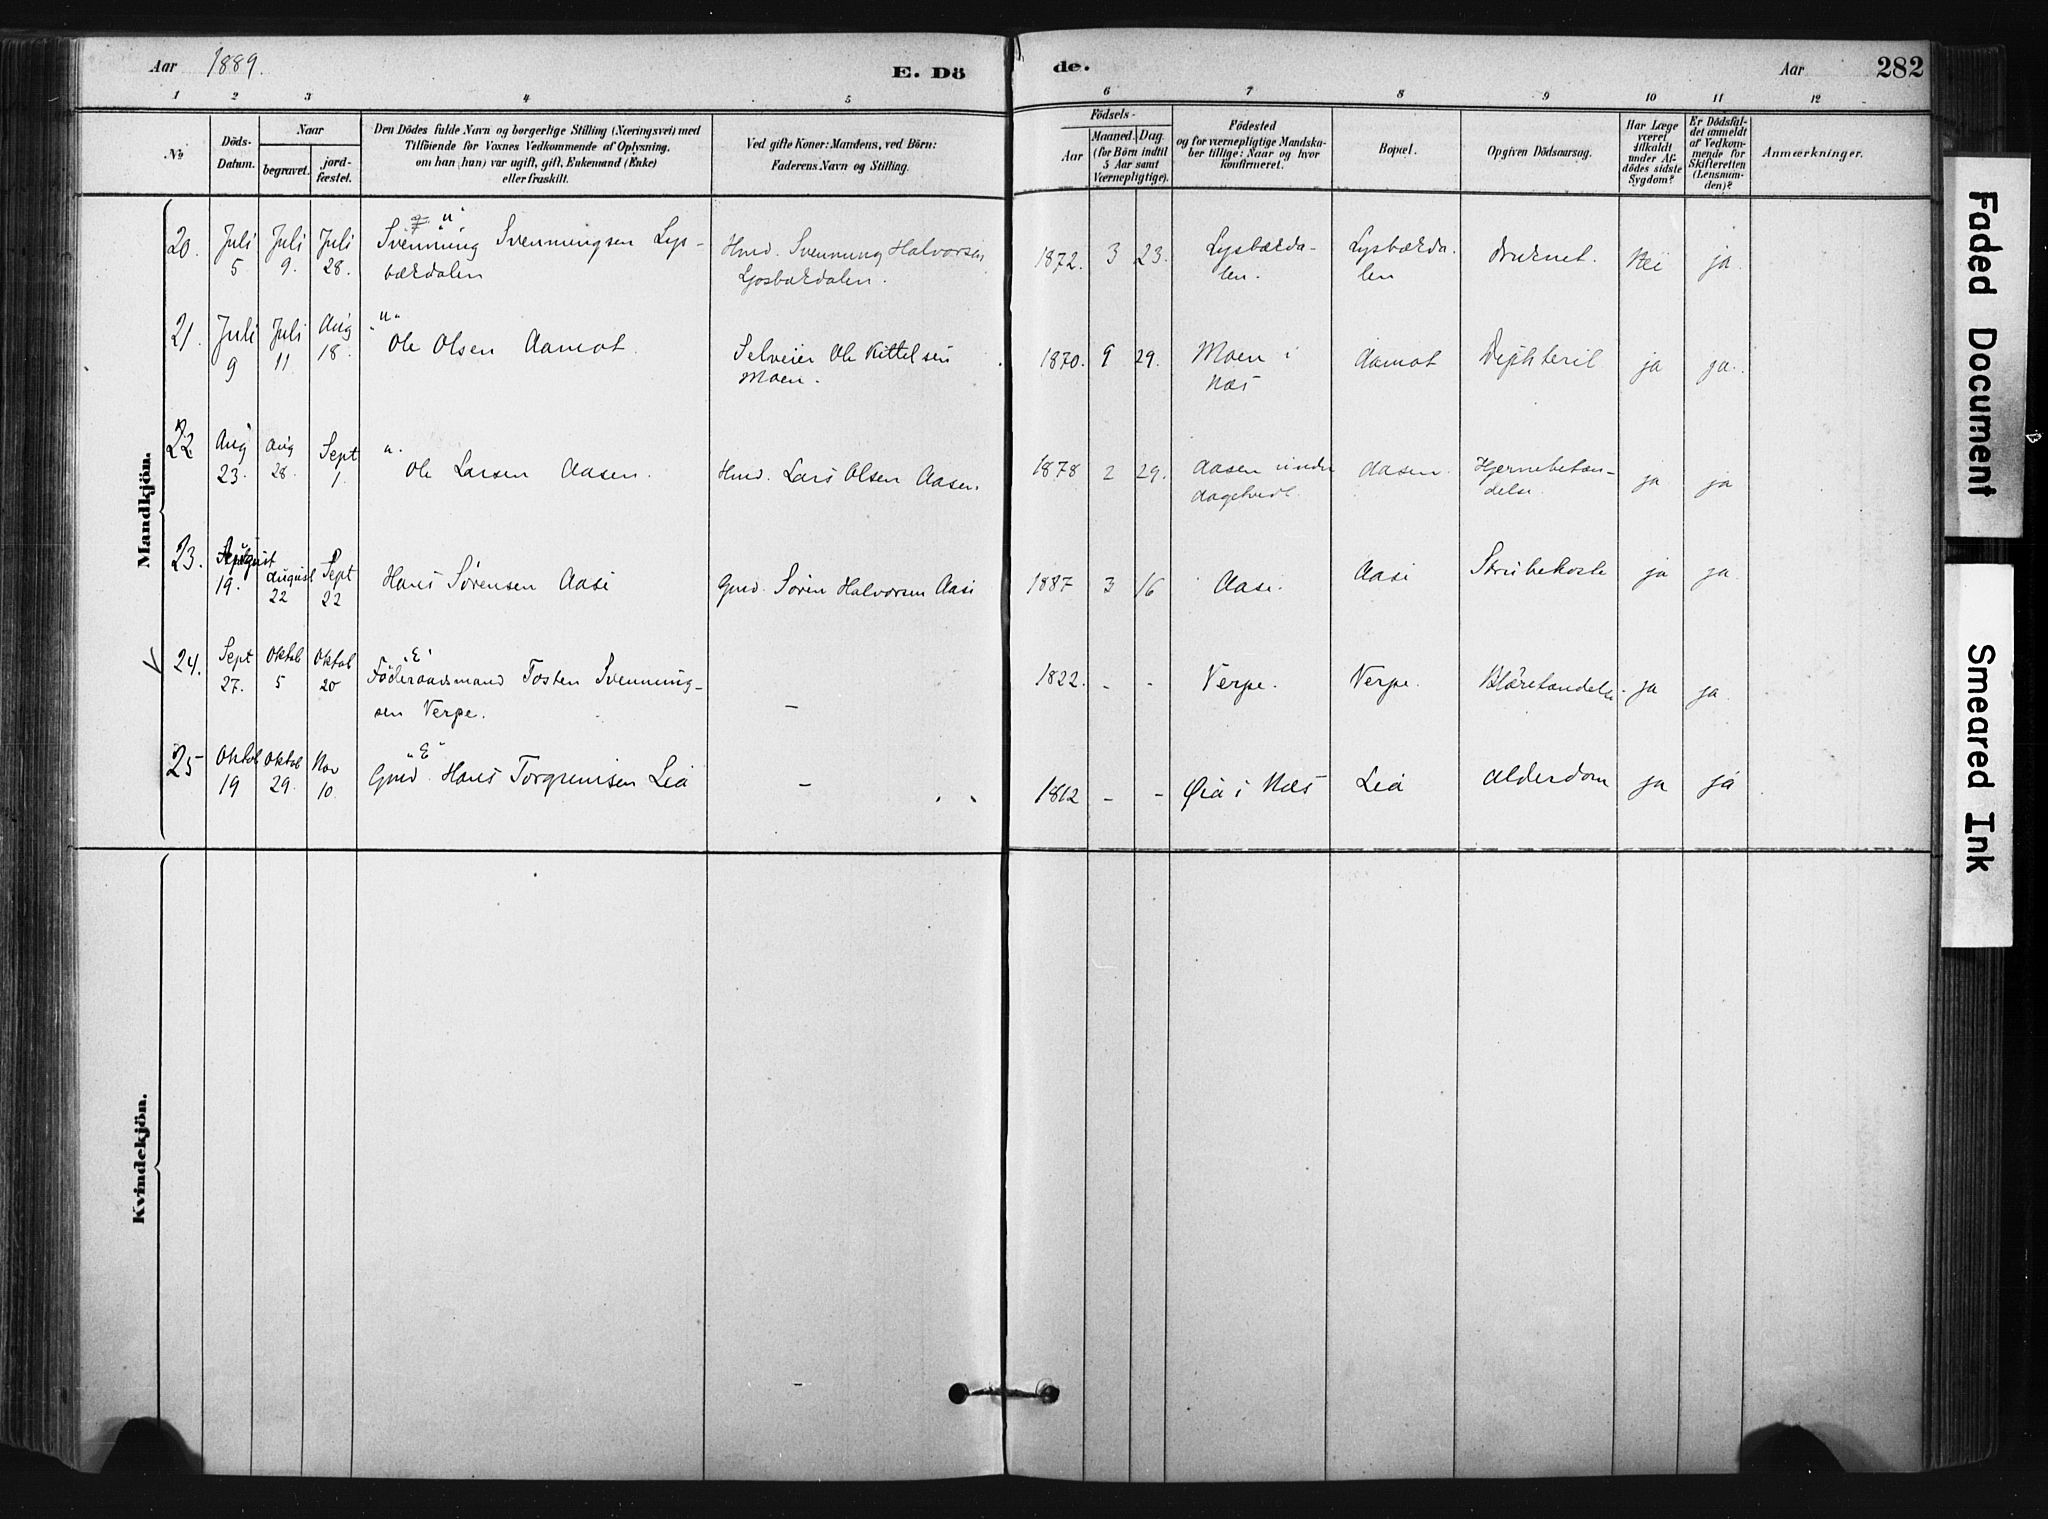 Aar 1889.
E. Dö
de.
Aar
282
1 2 3 4 5 6 7 8 9 10 11 12
No
Döds-
Datum.
Naar
begravet.
jord-
fæstet.
Den Dödes fulde Navn og borgerlige Stilling (Næringsvei) med
Tilföiende for Voxnes Vedkommende af Oplysning,
om han (hun) var ugift, gift, Enkemand (Enke)
eller fraskilt.
Ved gifte Koner: Mandens, ved Börn:
Faderens Navn og Stilling.
Födsels-
Aar
Maaned. Dag.
(for Börn indtil
5 Aar samt
Værnepligtige).
Födested
og for værnepligtige Mandska-
ber tillige: Naar og hvor
konfirmeret.
Bopæl.
Opgiven Dödsaarsag.
Har Læge
været
tilkaldt
under Af-
dödes sidste
Sygdom?
Er Dödsfal-
det anmeldt
af Vedkom-
mende for
Skifteretten
(Lensman-
den)?
Anmærkninger.
Mandkjön.
20. Juli 5 Juli 9. Juli 28. "u" Svenning Svenningsen Lys-
bærdalen
Hmd. Svenning Halvorsen
Lysbærdalen.
1872. 3 23. Lysbærda-
len.
Lysbærda-
len
druknet. Nei ja.
21. Juli 9 Juli 11 Aug 18. "u" Ole Olsen Aamot.
Selveier Ole Kittelsen
Moen.
1870. 9 29. Moen i
Næs
Aamot Diphterit ja ja.
22 Aug 23. Aug 28. Sept 1. "u" Ole Larsen Aasen.
Hmd. Lars Olsen Aasen.
1878 2 29. Aasen under
Aagetvedt.
Aasen. Hjernebetæn-
delse.
ja ja
23. August 19. August 22 Sept 22 Hans Sörensen Aase
Gmd. Sören Halvorsen Aase
1887 3 16 Aase. Aase Strubehoste ja ja.
24. Sept 27. Oktob 5 Oktob 20 "E" Föderaadsmand Tosten Svenning-
sen Verpe.
-
1822. - - Verpe. Verpe. Blærebetændelse. ja ja.
25 Oktob 19 Oktob 29. Nov 10. "E" Gmd. Hans Torgrimsen Lia
-
1812 - - Øia i Næs Lia Alderdom ja ja
Kvindekjön.
Faded Document
Smeared Ink